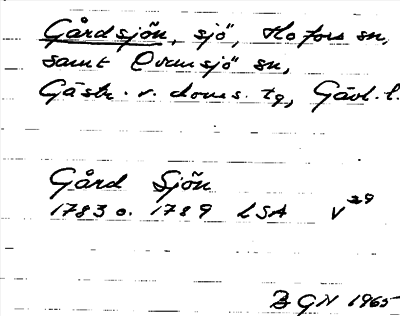 Gårdsjön, sjö, Hofors sn,
samt Ovansjö sn,
Gästr. v. doms. tg, Gävl. l.
Gård Sjön
1783 o. 1789 LSA V 29
GN 1965